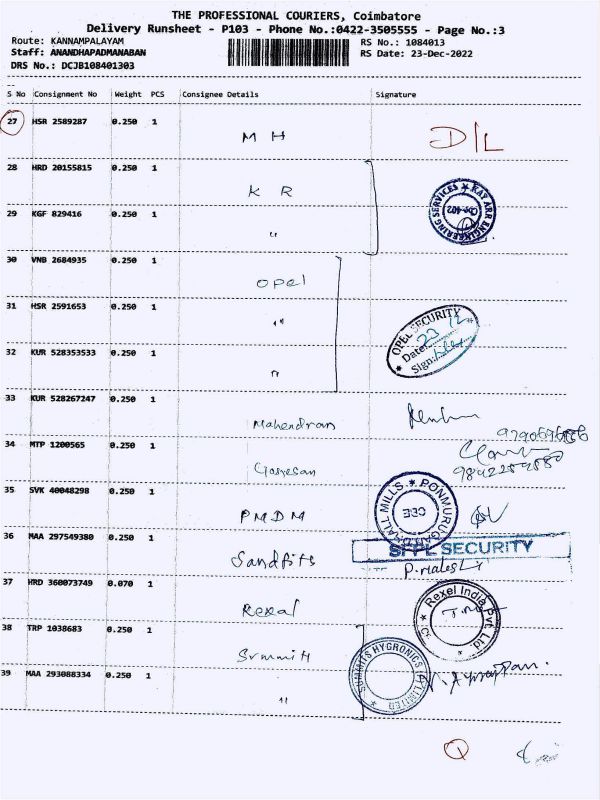 THE PROFESSIONAL COURIERS, Coimbatore
Delivery Runsheet - P103 - Phone No.:0422-3505555 - Page No.:3
Route: KANNAMPALAYAM RS No.: 1084013
Staff: ANANDHAPADMANABAN RS Date: 23-Dec-2022
DRS No.: DCJB108401303
S No Consignment No Weight PCS Consignee Details Signature
27 HSR 2589287 0.250 1
M H D/L
28 HRD 20155815 0.250 1
K R
KAY ARR ENGINEERING SERVICES
29 KGF 829416 0.250 1
"
30 VNB 2684935 0.250 1
Opel
31 HSR 2591653 0.250 1
"
OPEL SECURITY
Date: 23 12
Sign:
32 KUR 528353533 0.250 1
"
33 KUR 528267247 0.250 1
Mahendran
34 MTP 1200565 0.250 1
Ganesan
35 SVK 40048298 0.250 1
PMDM
CBE
36 MAA 297549380 0.250 1
SFPL SECURITY
Sandfits
37 HRD 360073749 0.070 1
Rexel India Pvt. Ltd.
Rexal
38 TRP 1038683 0.250 1
Summit
SUMMITS HYGRONICS (P) LIMITED
39 MAA 293088334 0.250 1
"